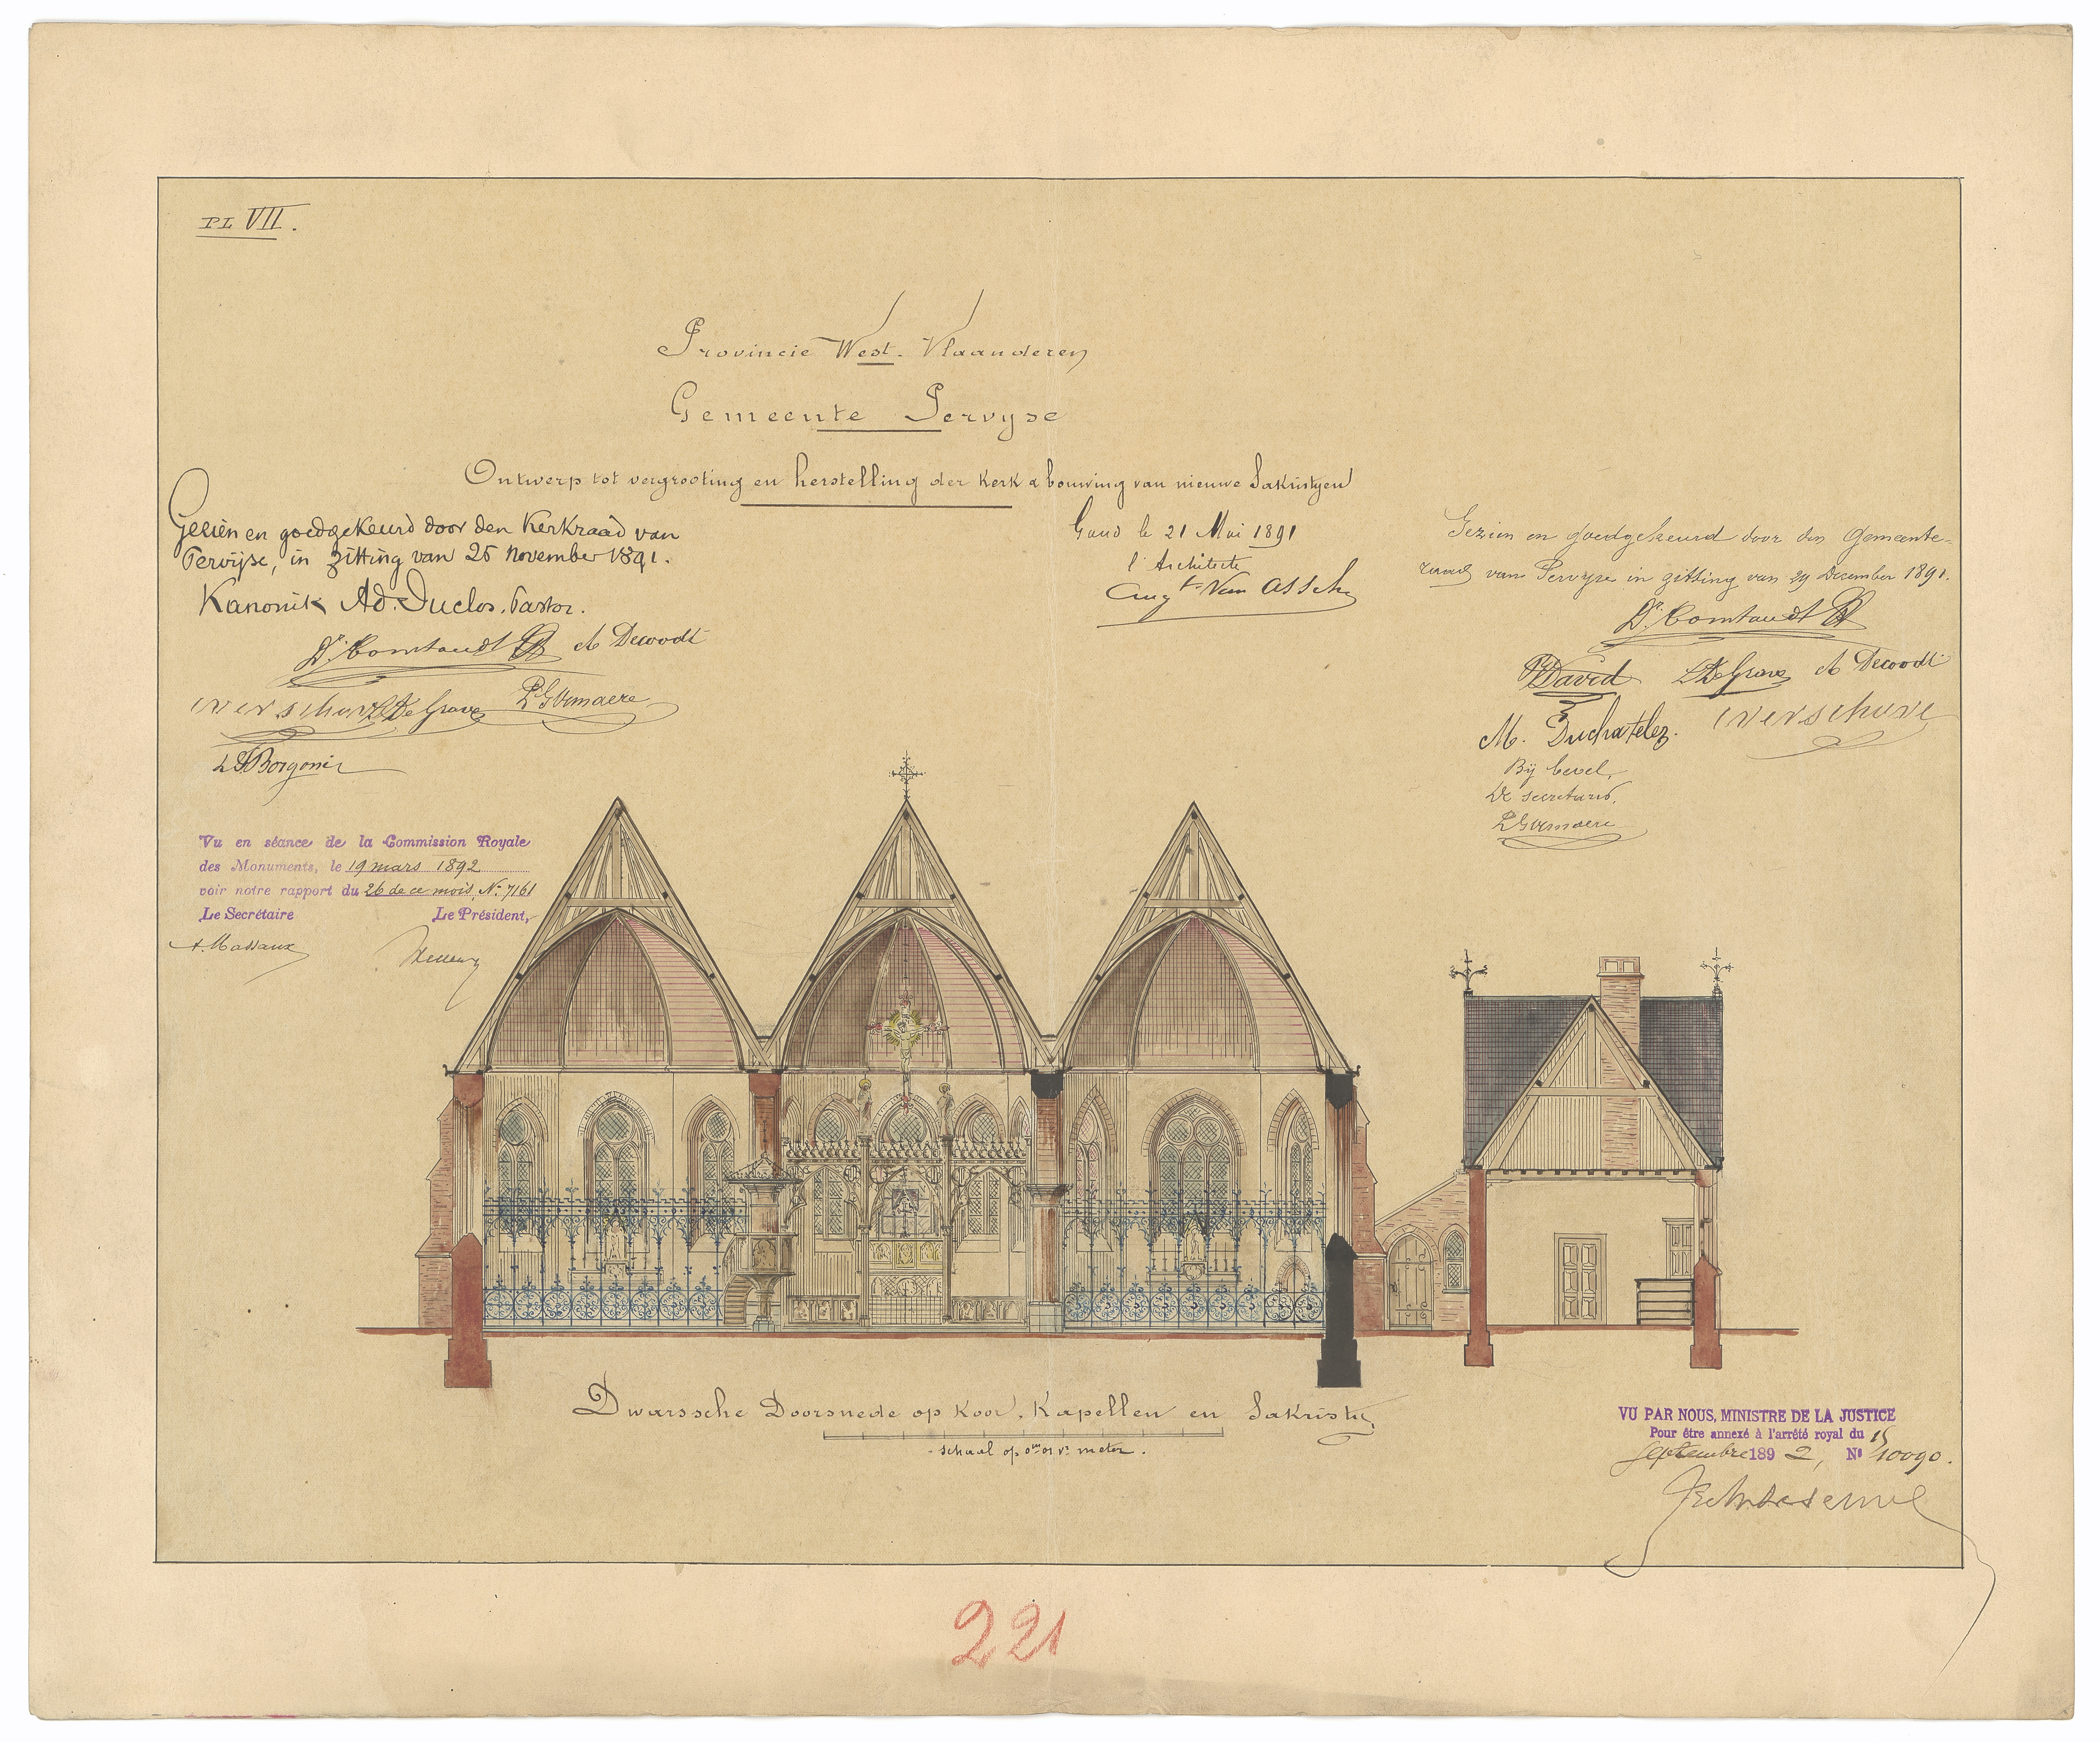 PL VII.
Provincie West-Vlaanderen
Gemeente Pervyse
Ontwerp tot vergrooting en herstelling der Kerk & bouwing van nieuwe Sakristyen
Gezien en goedgekeurd door den Kerkraad van
Pervijse, in zitting van 25 november 1891.
Kanonik Ad. Duclos. Pastor.
A Dewodt
L DeGrave
Gand le 21 Mai 1891
l'Architecte
Augt Van Assche
Gezien en goedgekeurd door den Gemeente-
raad van Pervyse in zitting van 29 December 1891.
David L DeGrave A Dewodt
M. Duchatelez.
Bij bevel,
De secretaris,
Vu en séance de la Commission Royale
des Monuments, le 19 mars 1892
voir notre rapport du 26 de ce mois, No 7161
Le Secrétaire Le Président,
A. Massaux
Dwarssche Doorsnede op Koor, Kapellen en Sakristy.
schaal op 0m01 pr meter.
VU PAR NOUS, MINISTRE DE LA JUSTICE
Pour être annexé à l'arrêté royal du 15
Septembre 1892, No 10090.
221